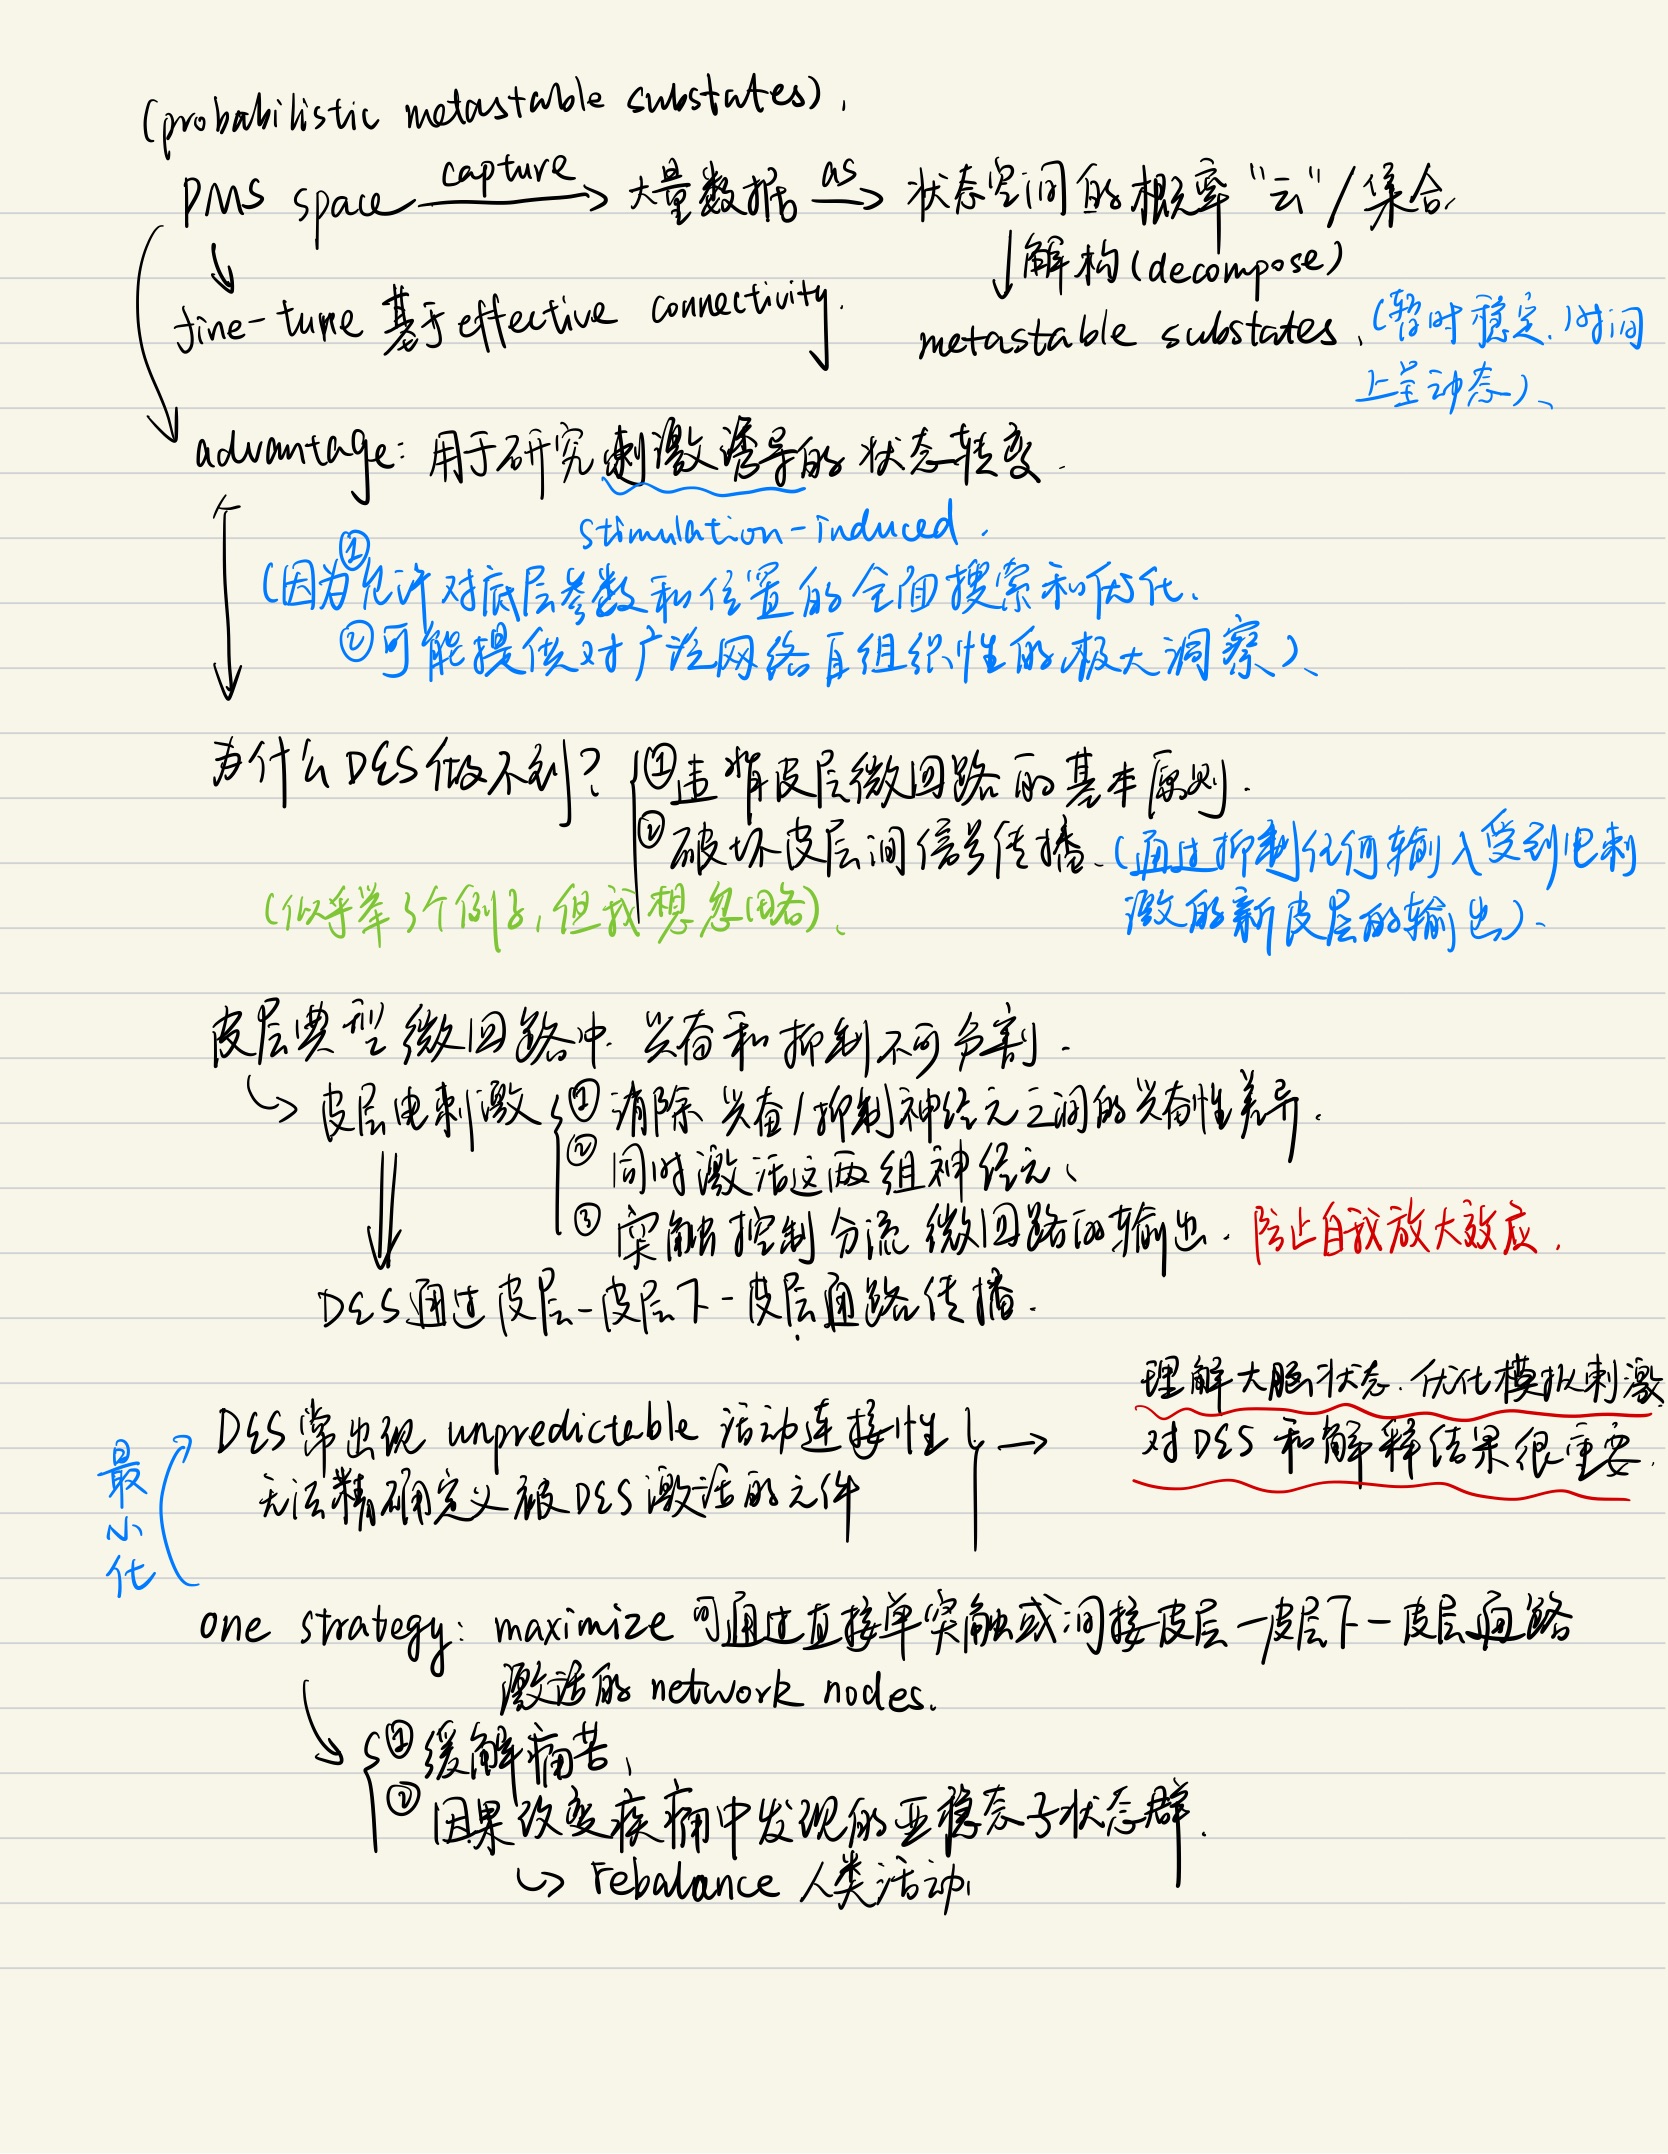 (probabilistic metastable substates),
PMS space capture 大量数据 as 状态空间的概率“云”/集合,
解构(decompose)
fine-tune 基于effective connectivity.
metastable substates, (暂时稳定,时间
上呈动态)、
advantage: 用于研究刺激诱导的状态转变.
stimulation-induced.
(因为①允许对底层参数和位置的全面搜索和优化、
②可能提供对广泛网络自组织性的极大洞察)、
为什么DES做不到? ①违背皮层微回路的基本原则.
②破坏皮层间信号传播、(通过抑制任何输入受到电刺
激的新皮层的输出)、
(似乎举了个例子,但我想忽略)、
皮层典型微回路中 兴奋和抑制不可分割.
皮层电刺激 ①消除 兴奋/抑制神经元之间的兴奋性差异.
②同时激活这两组神经元、
③突触控制分流 微回路的输出. 防止自我放大效应.
DES通过皮层-皮层下-皮层通路传播.
理解大脑状态、优化模拟刺激
DES常出现 unpredictable 活动连接性
对DES和解释结果很重要.
无法精确定义被DES激活的元件
最小化
one strategy: maximize 可通过直接单突触或间接皮层-皮层下-皮层通路
激活的 network nodes.
①缓解痛苦,
②因果改变疾病中发现的亚稳态子状态群.
rebalance 人类活动,